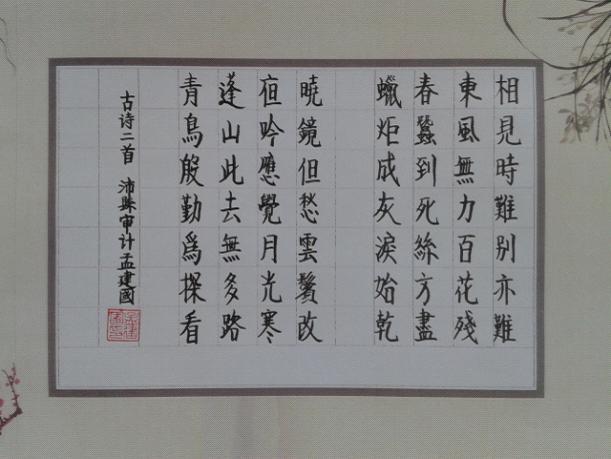 相見時難别亦難
東風無力百花殘
春蠶到死絲方盡
蠟炬成灰淚始乾
曉鏡但愁雲鬢改
夜吟應覺月光寒
蓬山此去無多路
青鳥殷勤爲探看
古诗二首 沛縣审计孟建國